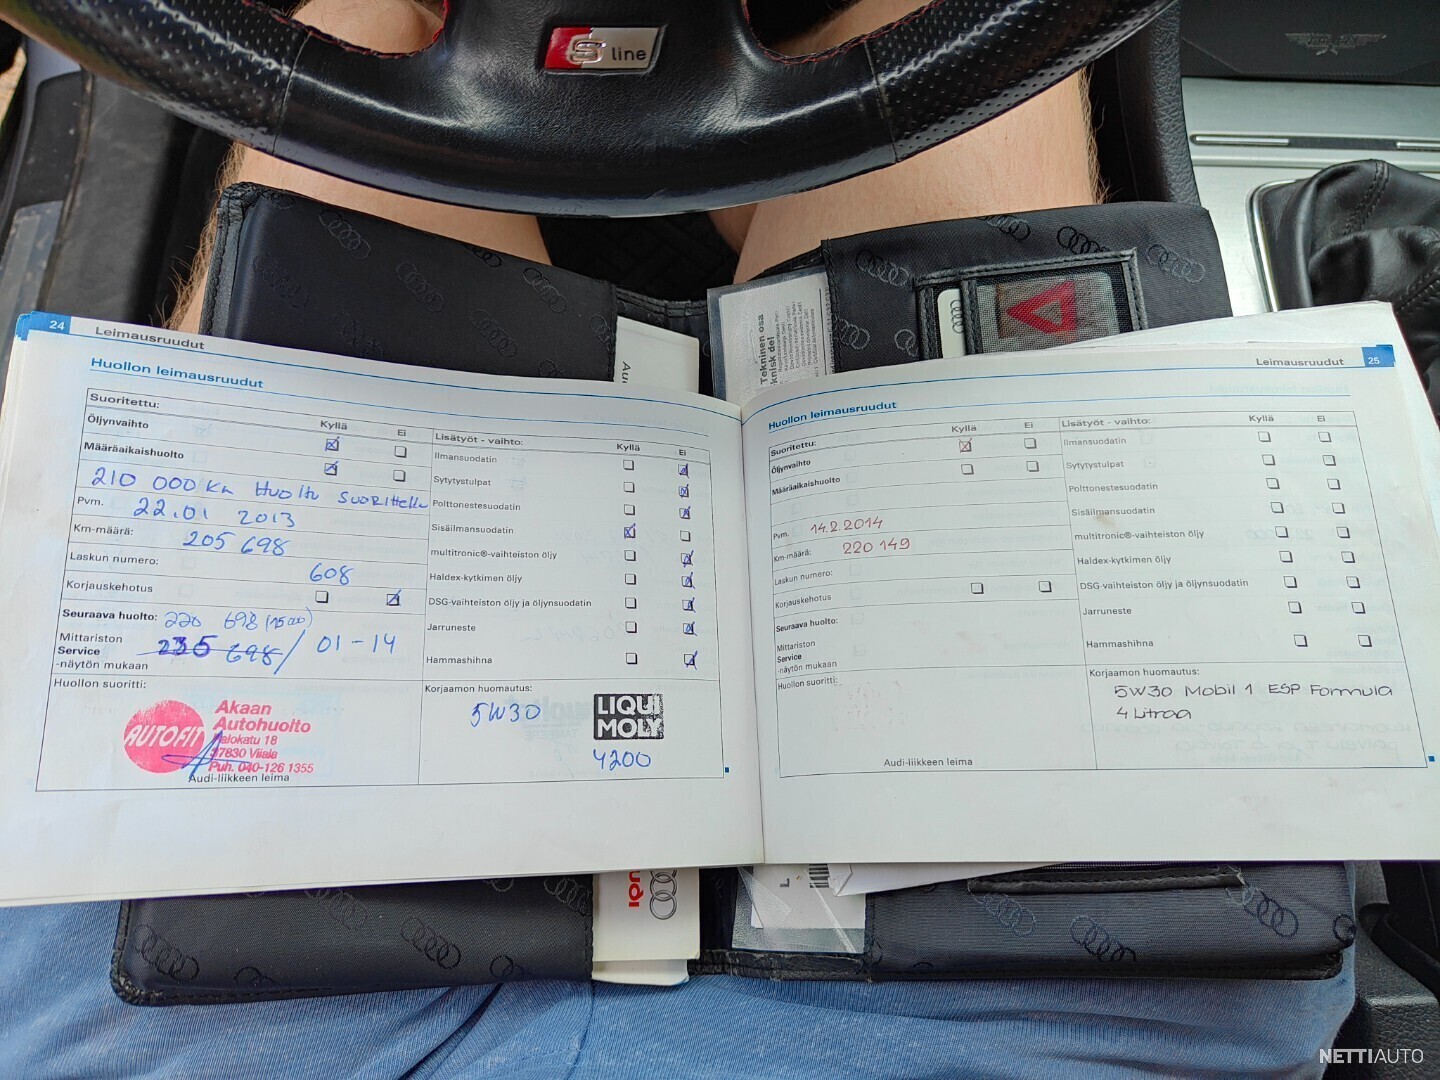 S line
Tekninen osa
knisk del
24
Leimausruudut
Huollon leimausruudut
Suoritettu:
Kyllä
Ei
Öljynvaihto
Määräaikaishuolto
210 000 km Huolto suoritettu
Pvm.
22.01 2013
Km-määrä:
205 698
Laskun numero:
608
Korjauskehotus
Seuraava huolto: 220 698 (15000)
Mittariston
Service
-näytön mukaan
235 698 / 01-14
Huollon suoritti:
AUTOFIT
Akaan
Autohuolto
alokatu 18
37830 Viiala
Puh. 040-126 1355
Audi-liikkeen leima
Lisätyöt - vaihto:
Kyllä
Ei
Ilmansuodatin
Sytytystulpat
Polttonestesuodatin
Sisäilmansuodatin
multitronic®-vaihteiston öljy
Haldex-kytkimen öljy
DSG-vaihteiston öljy ja öljynsuodatin
Jarruneste
Hammashihna
Korjaamon huomautus:
5W30
LIQUI
MOLY
4200
Leimausruudut
25
Huollon leimausruudut
Suoritettu:
Kyllä
Ei
Öljynvaihto
Määräaikaishuolto
Pvm.
14.2.2014
Km-määrä:
220 149
Laskun numero:
Korjauskehotus
Seuraava huolto:
Mittariston
Service
-näytön mukaan
Huollon suoritti:
Audi-liikkeen leima
Lisätyöt - vaihto:
Kyllä
Ei
Ilmansuodatin
Sytytystulpat
Polttonestesuodatin
Sisäilmansuodatin
multitronic®-vaihteiston öljy
Haldex-kytkimen öljy
DSG-vaihteiston öljy ja öljynsuodatin
Jarruneste
Hammashihna
Korjaamon huomautus:
5W30 Mobil 1 ESP Formula
4 Litraa
NETTIAUTO